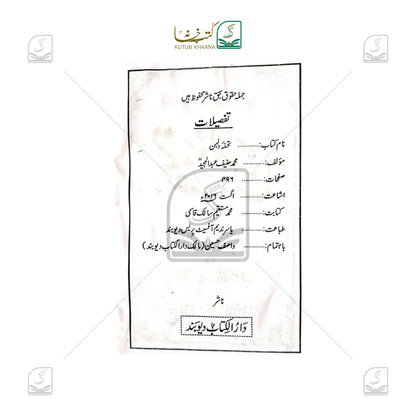 کتب خانہ
KUTUB KHAANA
جملہ حقوق بحق ناشر محفوظ ہیں
تفصیلات
نام کتاب: ......... تحفۂ دلہن
مؤلف: ......... محمد حنیف عبدالمجید
صفحات: ......... ۴۹۶
اشاعت: ......... اگست ۲۰۱۶ء
کتابت: ......... محمد مستقیم سالک قاسمی
طباعت: ......... یاسر ندیم آفسیٹ پریس دیوبند
باہتمام: ......... واصف حسین (مالک دارالکتاب دیوبند)
ناشر
دارالکتاب دیوبند